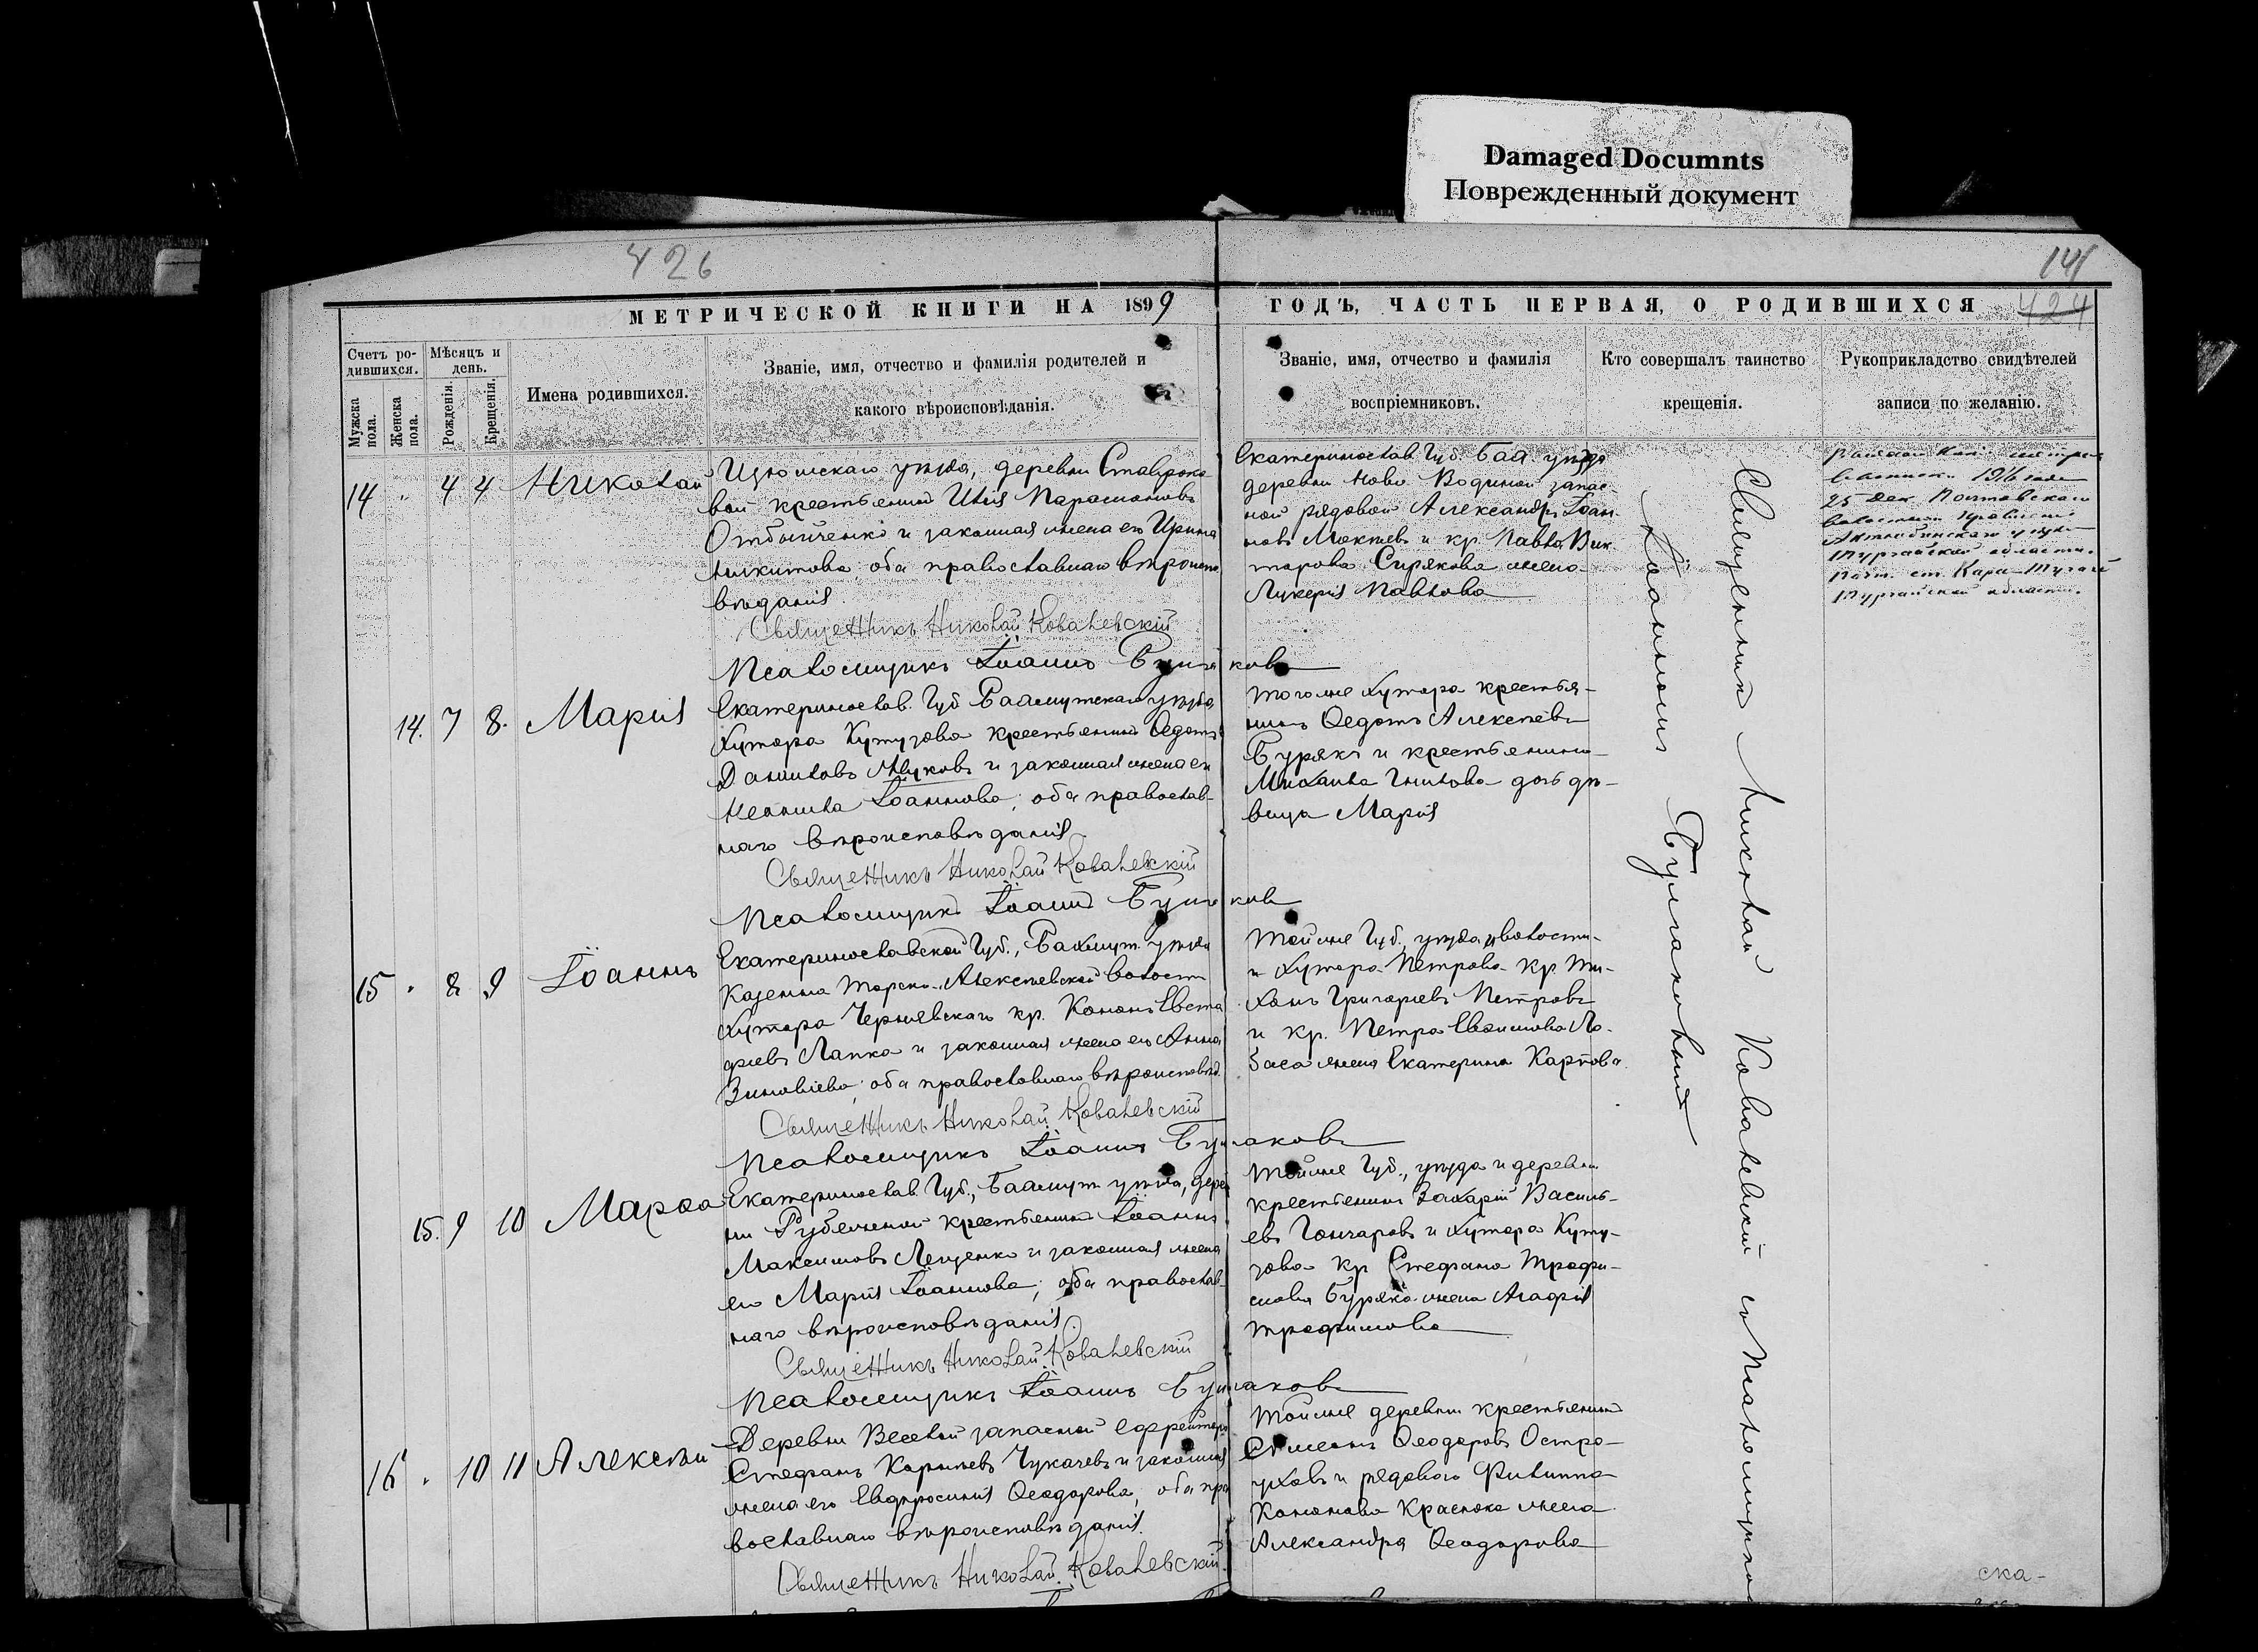 Damaged Documnts
Поврежденный документ
426
141
МЕТРИЧЕСКОЙ КНИГИ НА 1899
ГОДЪ, ЧАСТЬ ПЕРВАЯ, О РОДИВШИХСЯ
424
Счетъ ро-
дившихся.
Мѣсяцъ и
день.
Мужска
пола.
Женска
пола.
Рожденія.
Крещенія.
Имена родившихся.
Званіе, имя, отчество и фамилія родителей и
какого вѣроисповѣданія.
Званіе, имя, отчество и фамилія
воспріемниковъ.
Кто совершалъ таинство
крещенія.
Рукоприкладство свидѣтелей
записи по желанію.
14 4 4 Николай
Изюмскаго уѣзда, деревни
крестьянинъ Илія
и законная жена его Ирина
Никитова; оба православнаго вѣроиспо
вѣданія.
Священникъ Николай Ковалевскій
Псаломщикъ Іоаннъ Булгаковъ
Екатеринослав. Губ. Бах. уѣзда
деревни Ново Водяной запас-
ной рядовой Александръ Іоан-
новъ и кр. Павла Вик
торова Сирякова жена
Лукерія Павлова
1916 года
25 Дек. Полтавскаго
Актюбинскаго уѣзда
Тургайской области.
Почт. ст. Кара-Тугай
Тургайской области.
14. 7 8. Марія
Екатеринослав. Губ Бахмутскаго уѣзда,
Хутора Кутузова крестьянинъ Ѳедотъ
Даниловъ Жуковъ и законная жена его
Неонила Іоаннова; оба православ-
наго вѣроисповѣданія.
Священникъ Николай Ковалевскій
Псаломщикъ Іоаннъ Булгаковъ
Тогоже Хутора крестья-
нинъ Ѳедотъ Алексѣевъ
Бурякъ и крестьянина
Михаила Гнилова дочь дѣ-
вица Марія
15 8 9 Іоаннъ
Екатеринославской Губ., Бахмут. уѣзда
Казенно Торско-Алексѣевской волости
Хутора Чернявскаго кр. Кононъ Евста
фіевъ Лапко и законная жена его Анна
Зиновіева; оба православнаго вѣроисповѣд.
Священникъ Николай Ковалевскій
Псаломщикъ Іоаннъ Булгаковъ
Тойже Губ., уѣзда, волости
и Хутора Петрова кр. Ти-
хонъ Григорьевъ Петровъ
и кр. Петра Евѳимова Ло-
баса жена Екатерина Карпова.
15. 9 10 Марѳа
Екатеринослав. Губ., Бахмут уѣзда, дерев
ни Рубежной крестьянинъ Іоаннъ
Максимовъ Лещенко и законная жена
его Марія Іоаннова; оба православ-
наго вѣроисповѣданія.
Священникъ Николай Ковалевскій
Псаломщикъ Іоаннъ Булгаковъ
Тойже Губ., уѣзда и деревни
крестьянинъ Захарій Василь-
евъ Гончаровъ и Хутора Куту-
зова кр Стефана Трофи-
мова Буряка жена Агафія
Трофимова
16 10 11 Алексѣй
Деревни Веселой запасной ефрейторъ
Стефанъ Карповъ Чукачевъ и законная
жена его Евфросинія Ѳеодорова, оба пра
вославнаго вѣроисповѣданія.
Священникъ Николай Ковалевскій.
Тойже деревни крестьянинъ
Симеонъ Ѳеодоровъ Остро-
уховъ и рядового Филиппа
Кононова Краснока жена
Александра Ѳеодорова
Священникъ Николай Ковалевскій съ Псаломщикомъ
Іоанномъ Булгаковымъ
ска-